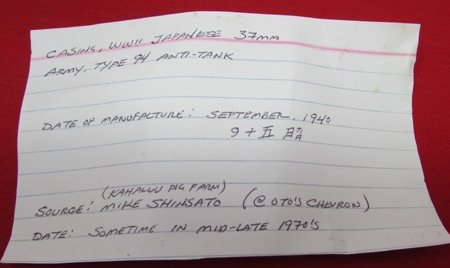 CASING, WWII JAPANESE 37mm
ARMY, TYPE 94 ANTI-TANK
DATE OF MANUFACTURE: SEPTEMBER, 1940
9 + 五
(KAHALUU PIG FARM)
SOURCE: MIKE SHINSATO (@ OTO'S CHEVRON)
DATE: SOMETIME IN MID-LATE 1970'S